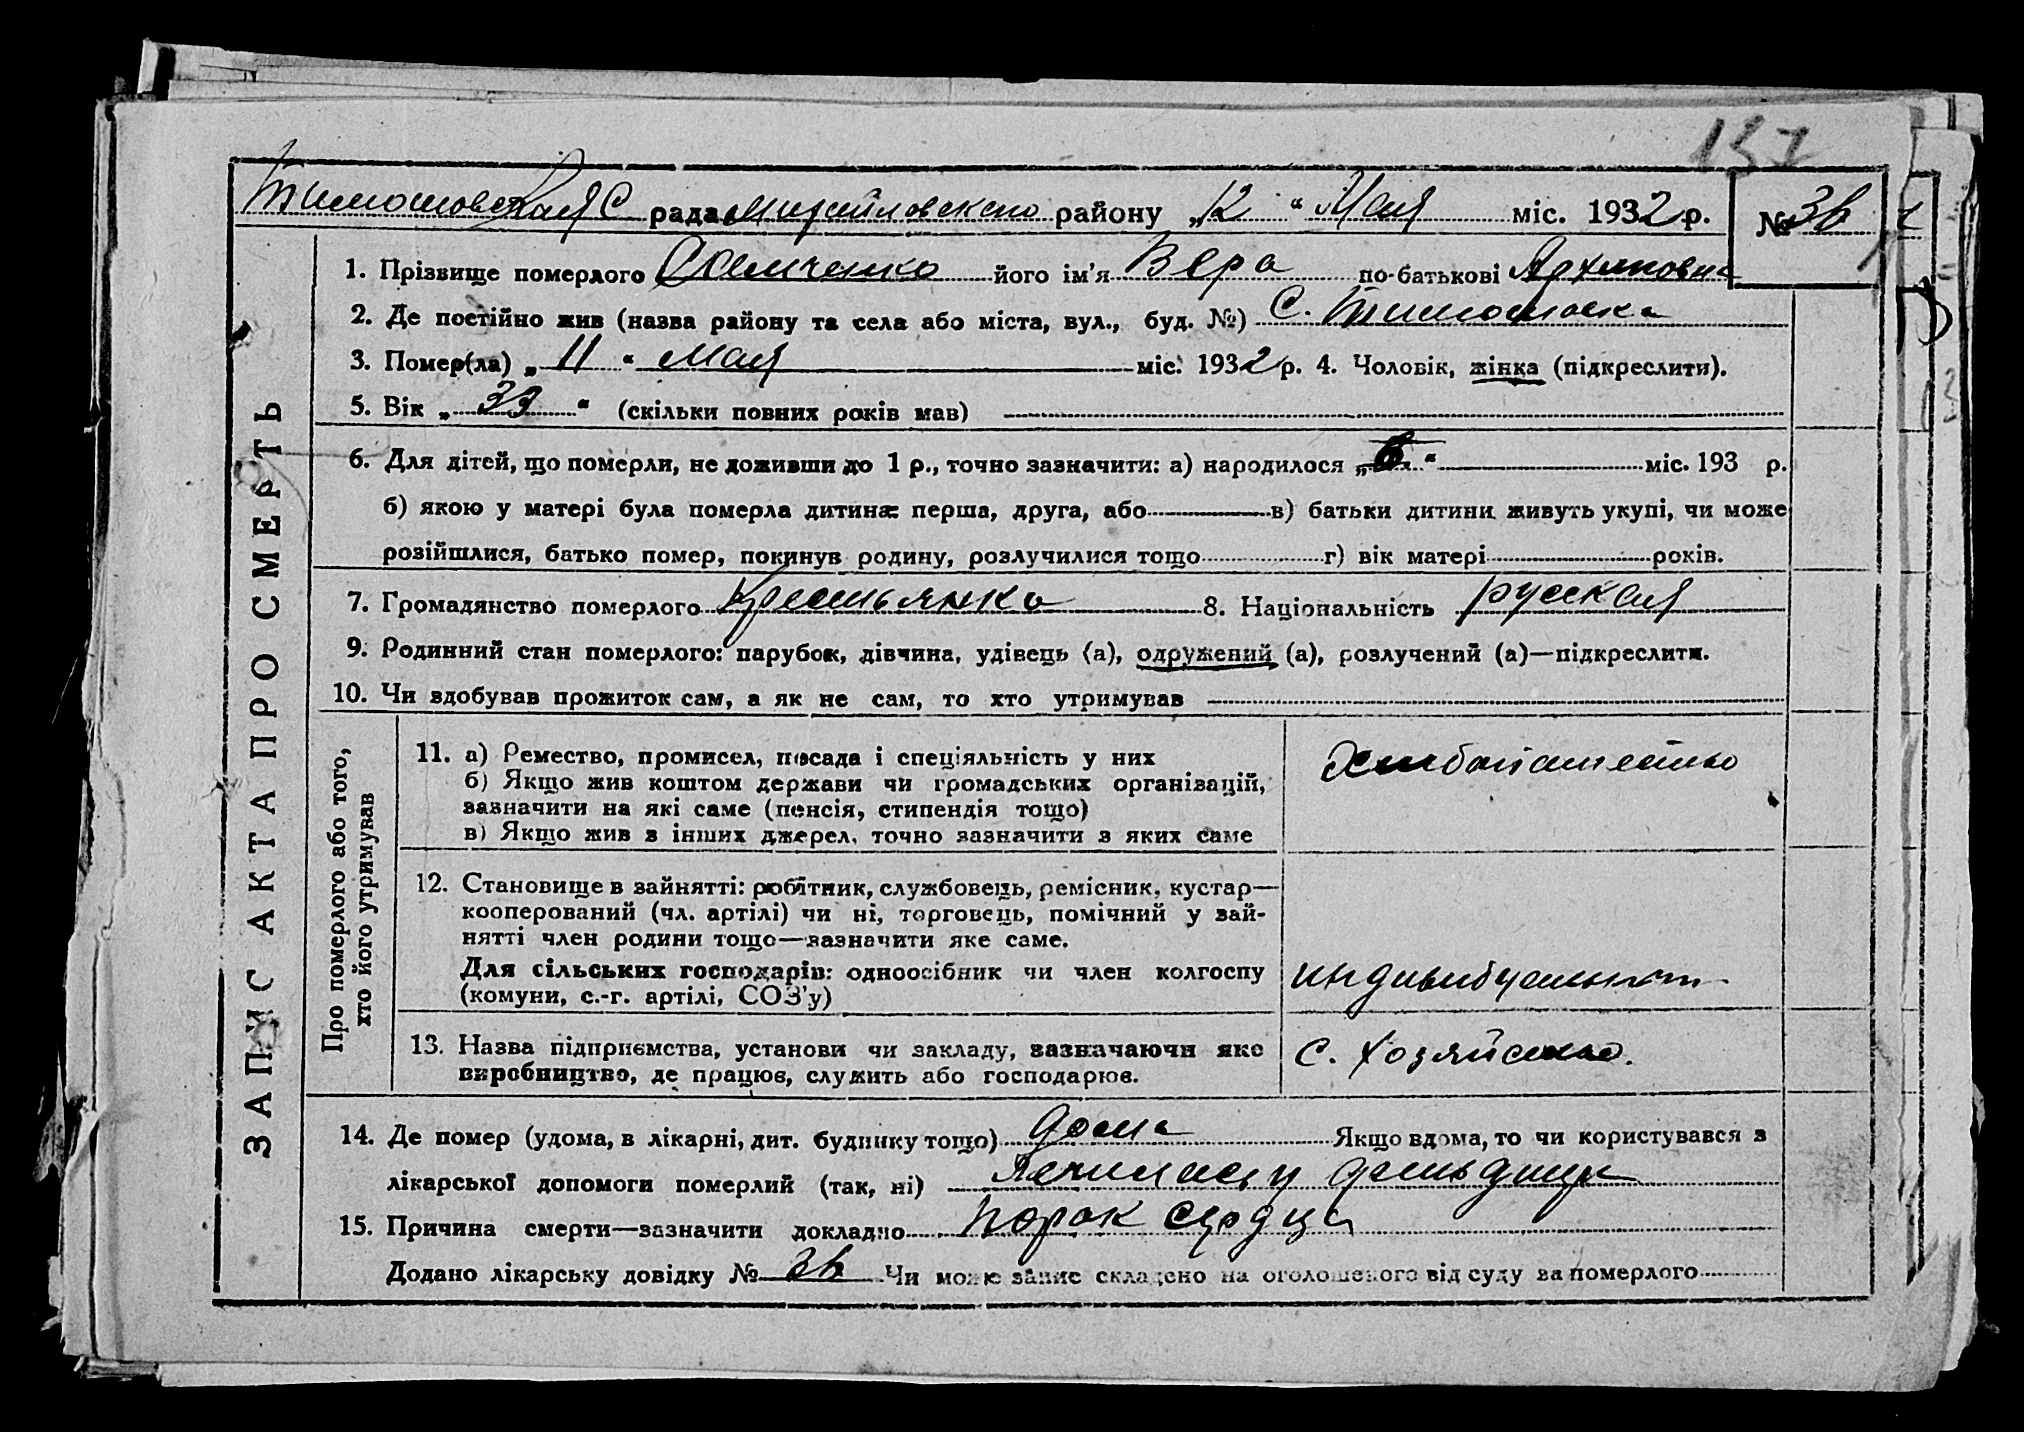 137
Тимошовская С рада Михайловского району „12“ Мая міс. 1932 р. № 36
1. Прізвище померлого його ім'я Вера по-батькові Архиповна
2. Де постійно жив (назва району та села або міста, вул., буд. №) С. Тимошовка
3. Помер(ла) „11“ Мая міс. 1932 р. 4. Чоловік, жінка (підкреслити).
5. Вік „33“ (скільки повних років мав)
6. Для дітей, що померли, не доживши до 1 р., точно зазначити: а) народилося „ “ міс. 193 р.
б) якою у матері була померла дитина: перша, друга, або в) батьки дитини живуть укупі, чи може
розійшлися, батько помер, покинув родину, розлучилися тощо г) вік матері років.
7. Громадянство померлого Крестьянка 8. Національність русская
9. Родинний стан померлого: парубок, дівчина, удівець (а), одружений (а), розлучений (а)—підкреслити.
10. Чи здобував прожиток сам, а як не сам, то хто утримував
ЗАПИС АКТА ПРО СМЕРТЬ
Про померлого або того,
хто його утримував
11. а) Ремество, промисел, посада і спеціяльність у них
б) Якщо жив коштом держави чи громадських організацій,
зазначити на які саме (пенсія, стипендія тощо)
в) Якщо жив з інших джерел, точно зазначити з яких саме
Хлебопашество
12. Становище в зайнятті: робітник, службовець, ремісник, кустар—
кооперований (чл. артілі) чи ні, торговець, помічний у зай-
нятті член родини тощо—зазначити яке саме.
Для сільських господарів: одноосібник чи член колгоспу
(комуни, с.-г. артілі, СОЗ'у)
13. Назва підприємства, установи чи закладу, зазначаючи яке
виробництво, де працює, служить або господарює.
С. Хозяйство.
14. Де помер (удома, в лікарні, дит. будинку тощо) дома Якщо вдома, то чи користувався з
лікарської допомоги померлий (так, ні) Лечилась у
15. Причина смерти—зазначити докладно порок сердца
Додано лікарську довідку № 36 Чи може запис складено на оголошеного від суду за померлого